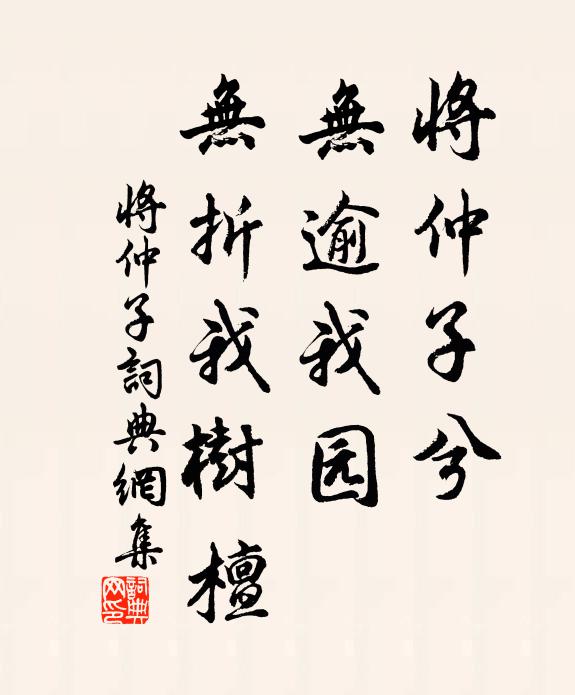 将仲子兮
無逾我园
無折我樹檀
将仲子詞典網集
詞典
网印